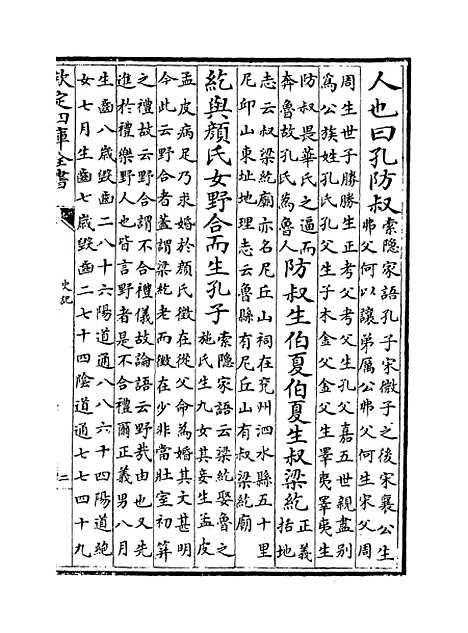 人也曰孔防叔
索隱家語孔子宋微子之後宋襄公生
弗父何以讓弟厲公弗父何生宋父周
周生世子勝勝生正考父考父生孔父嘉五世親盡别
為公族姓孔氏孔父生子木金父金父生睪夷睪夷生
防叔畏華氏之逼而
奔魯故孔氏為魯人
防叔生伯夏伯夏生叔梁紇
正義
括地
志云叔梁紇廟亦名尼丘山祠在兖州泗水縣五十里
尼邱山東址地理志云魯縣有尼丘山有叔梁紇廟
紇與顔氏女野合而生孔子
索隱家語云梁紇娶魯之
施氏生九女其妾生孟皮
孟皮病足乃求婚於顔氏徵在從父命為婚其文甚明
今此云野合者蓋謂梁紇老而徵在少非當壯室初筭
之禮故云野合謂不合禮儀故論語云野哉由也又先
進於禮樂野人也皆言野者是不合禮爾正義男八月
生齒八歲毀齒二八十六陽道通八八六十四陽道絶
女七月生齒七歲毀齒二七十四陰道通七七四十九
欽定四庫全書
史記
二